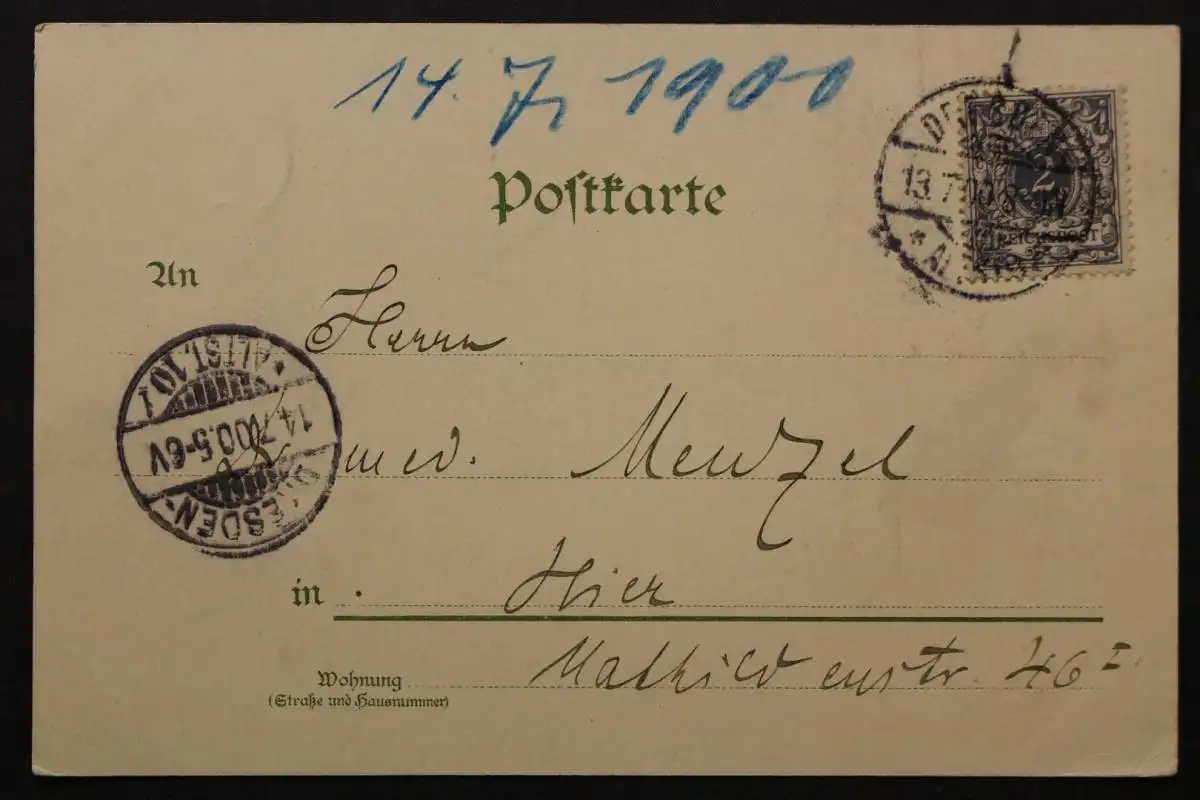 14. 7. 1900
Postkarte
13.7.00.8-9N
2
REICHSPOST
An
Herrn
ALTST. 10 l
14.7.00.5-6V
DRESDEN-
med. Menzel
in Hier
Mathildenstr. 46 I
Wohnung
(Straße und Hausnummer)